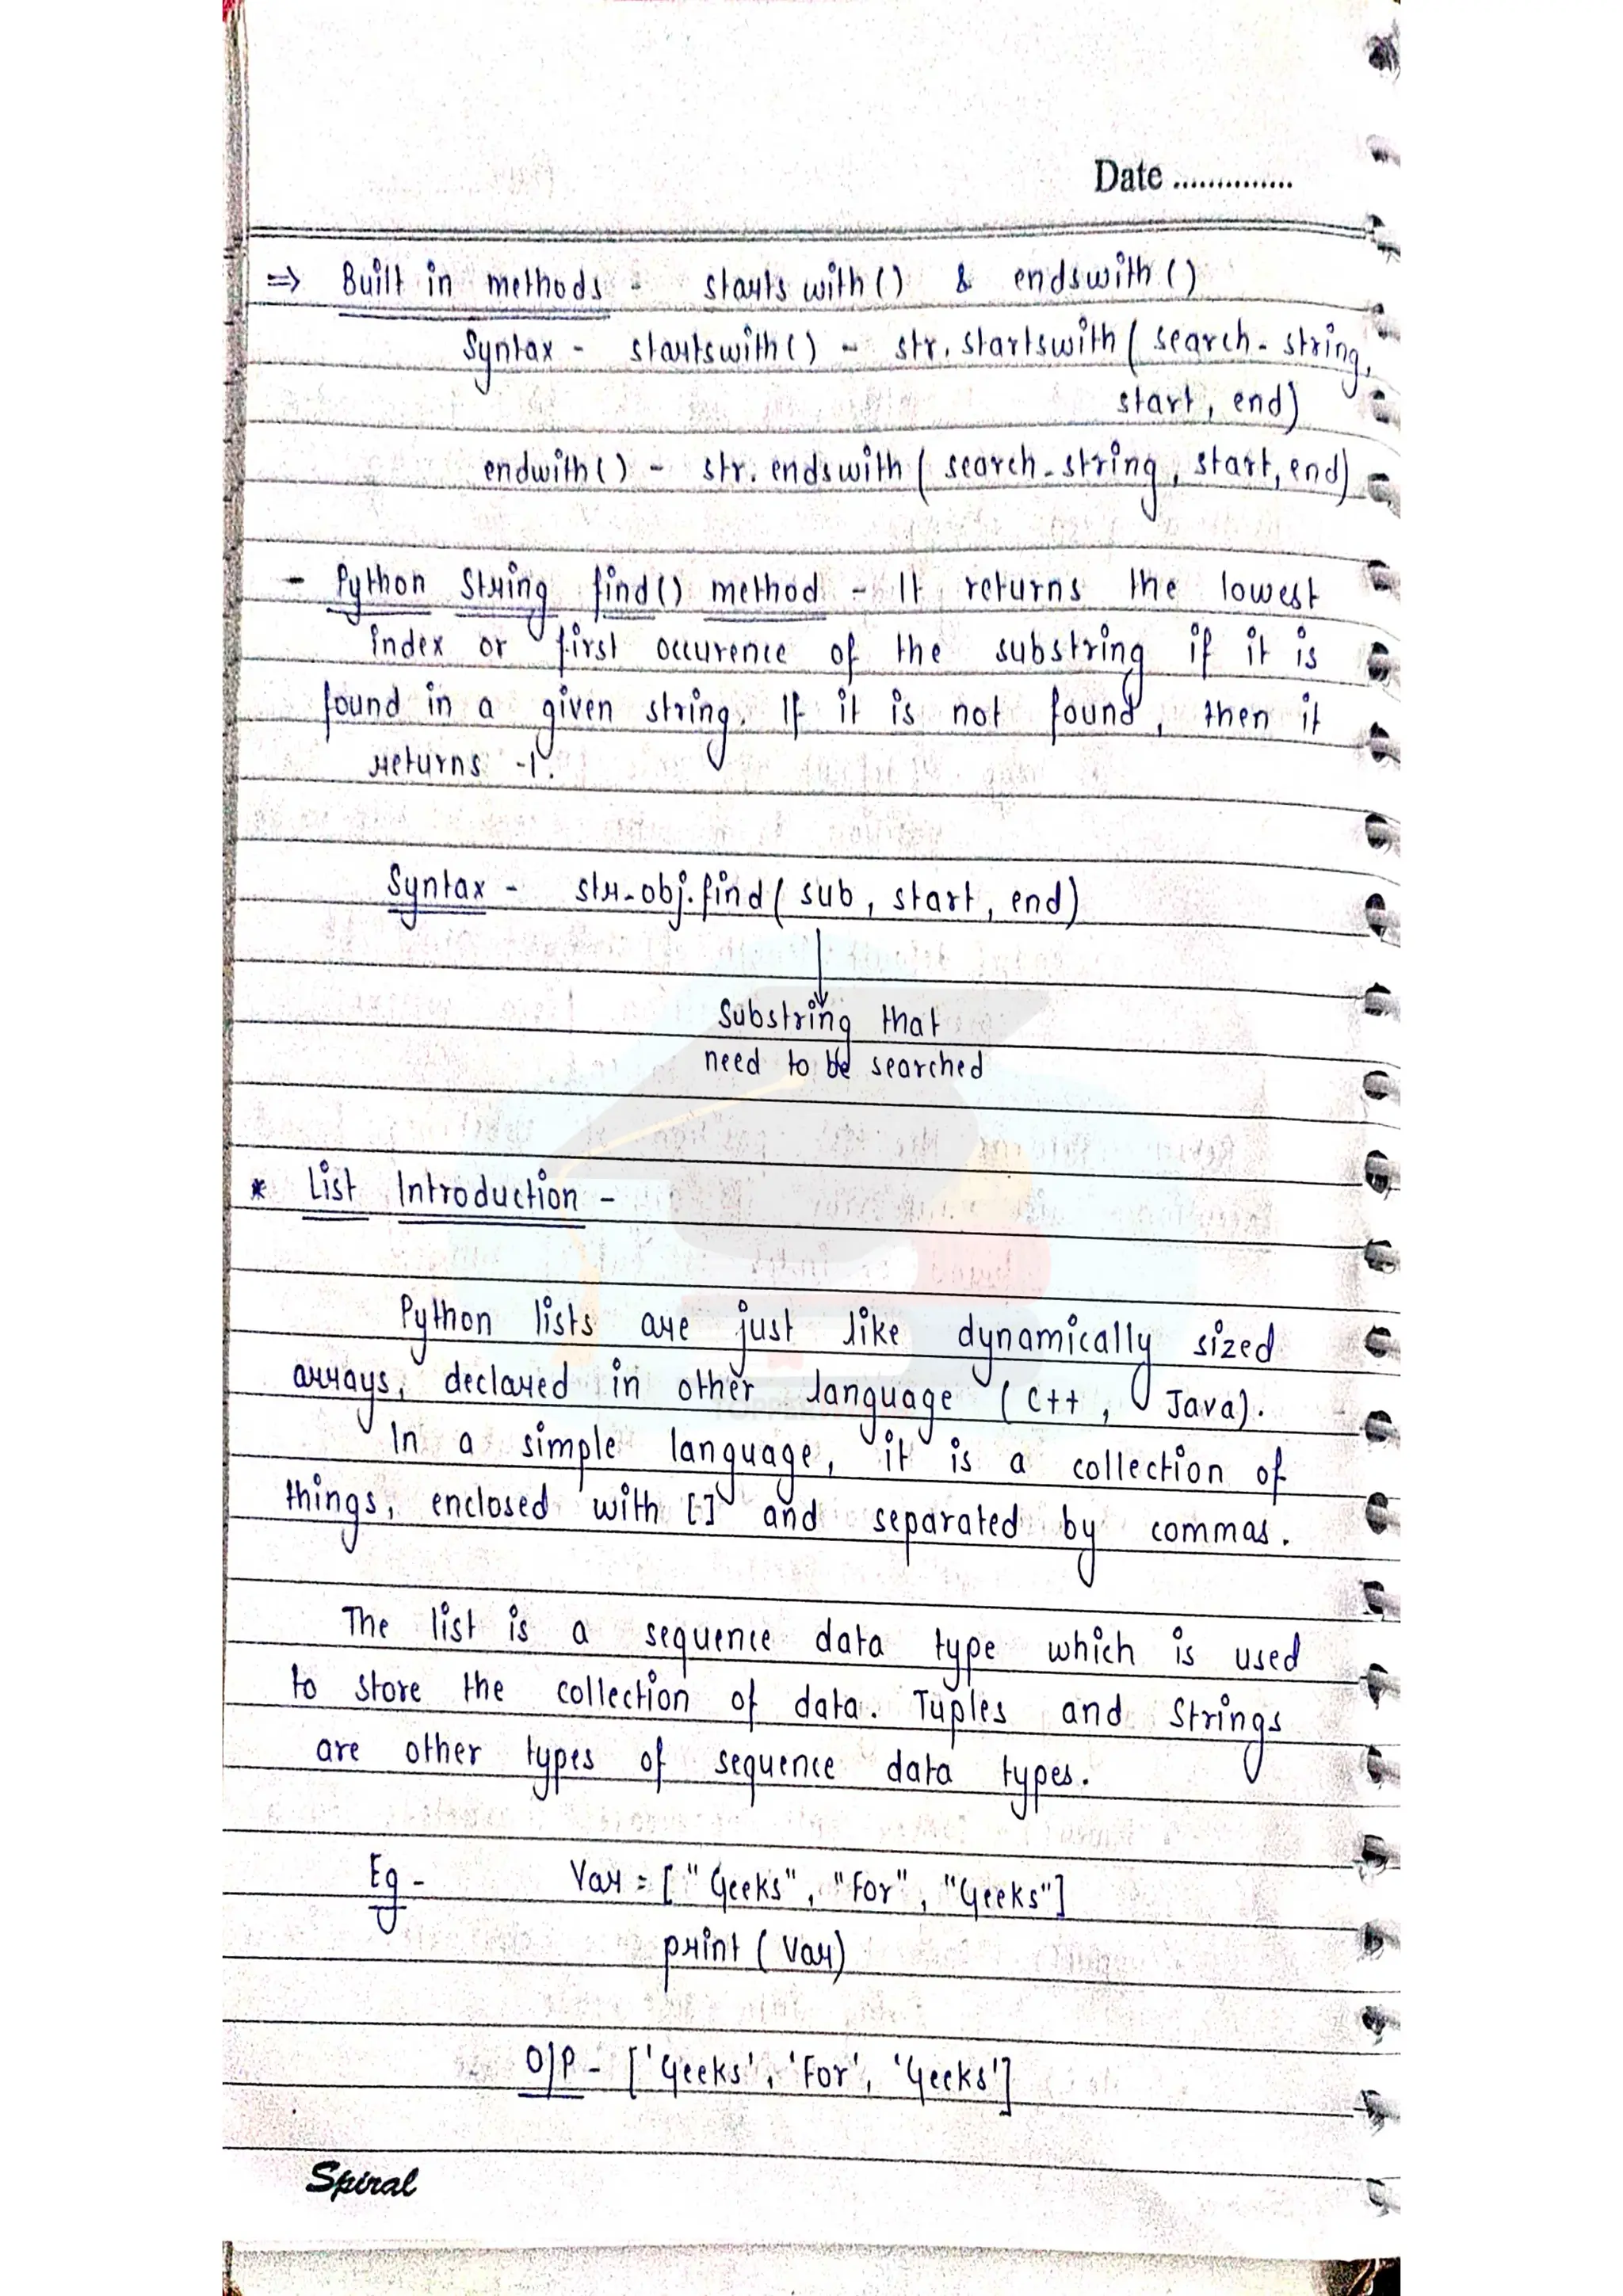 Date ..............
=> Built in methods - starts with() & endswith()
Syntax - startswith() - str. startswith( search - string,
start, end)
endwith() - str. endswith( search - string, start, end)
- Python String find() method - It returns the lowest
index or first occurence of the substring if it is
found in a given string. If it is not found, then it
returns -1.
Syntax - str-obj.find( sub, start, end)
Substring that
need to be searched
* List Introduction -
Python lists are just like dynamically sized
arrays, declared in other language ( C++, Java).
In a simple language, it is a collection of
things, enclosed with [] and separated by commas.
The list is a sequence data type which is used
to store the collection of data. Tuples and Strings
are other types of sequence data types.
Eg - Var = [ "Geeks", "For", "Geeks"]
print ( Var)
O/P - ['Geeks', 'For', 'Geeks']
Spiral